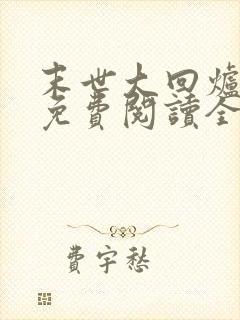 末世大回爐
免費閱讀全
費宇愁